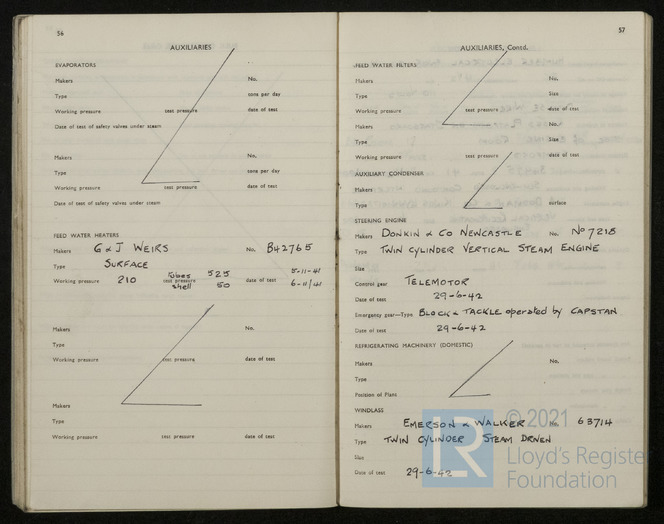 56
AUXILIARIES
EVAPORATORS
Makers No.
Type tons per day
Working pressure test pressure date of test
Date of test of safety valves under steam
Makers No.
Type tons per day
Working pressure test pressure date of test
Date of test of safety valves under steam
FEED WATER HEATERS
Makers G & J WEIRS No. B42765
Type SURFACE
Working pressure 210 test pressure Tubes 525 date of test 5-11-41
Shell 50 6-11/41
Makers No.
Type
Working pressure test pressure date of test
Makers
Type
Working pressure test pressure date of test
57
AUXILIARIES, Contd.
FEED WATER FILTERS
Makers No.
Type Size
Working pressure test pressure date of test
Makers No.
Type Size
Working pressure test pressure date of test
AUXILIARY CONDENSER
Makers
Type surface
STEERING ENGINE
Makers DONKIN & CO NEWCASTLE No. No 7218
Type TWIN CYLINDER VERTICAL STEAM ENGINE
Size
Control gear TELEMOTOR
Date of test 29-6-42
Emergency gear—Type BLOCK & TACKLE operated by CAPSTAN
Date of test 29-6-42
REFRIGERATING MACHINERY (DOMESTIC)
Makers No.
Type
Position of Plant
WINDLASS
Makers EMERSON & WALKER No. 63714
Type TWIN CYLINDER STEAM DRIVEN
Size
Date of test 29-6-42
LR
© 2021
Lloyd's Register
Foundation